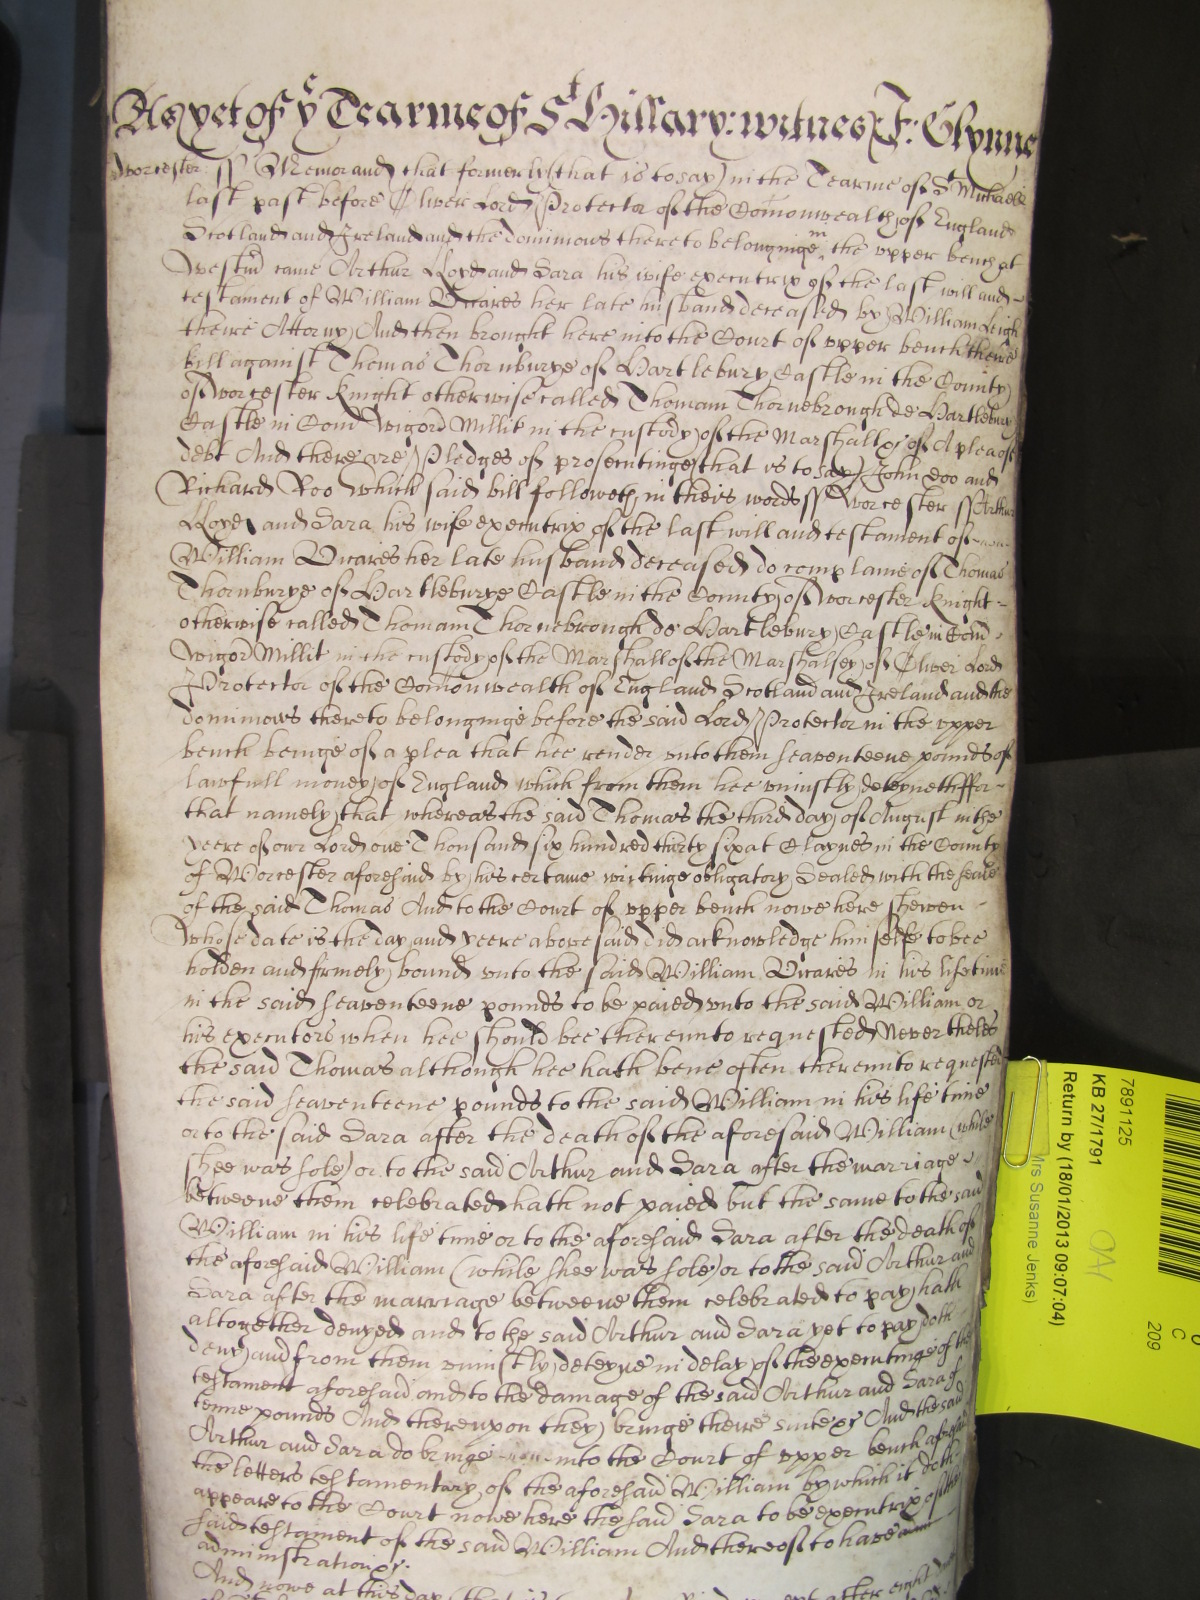 As yet of ye Tearme of St Hillary: witnes J: Glynne
Worcester ss Memorand that formerly (that is to say) in the Tearme of St Michaell
last past before Oliver Lord Protector of the Comonwealth of England
Scotland and Ireland and the dominions thereto belonginge in the upper bench at
Westmr came Arthur Lloyd and Sara his wife executrix of the last will and
testament of William Vicares her late husband deceased by William Leigh
theire Attorny And then brought here into the Court of upper bench theire
bill against Thomas Thornburye of Hartlebury Castle in the County
of Worcester Knight otherwise called Thomam Thornebrough de Hartlebury
Castle in Com Wigorn Millit in the custody of the Marshall &c of A plea of
debt And there are Pledges of prosecutinge that is to say John Doo and
Richard Roo Which said bill followeth in theis words ss Worcester ss Arthur
Lloyd and Sara his wife executrix of the last will and testament of
William Vicares her late husband deceased do complaine of Thomas
Thornburye of Hartleburye Castle in the County of Worcester Knight
otherwise called Thomam Thornebrough de Hartlebury Castle in Com
Wigor Millit in the custody of the Marshall of the Marshalsey of Oliver Lord
Protector of the Comonwealth of England Scotland and Ireland and the
dominions thereto belonginge before the said Lord Protector in the upper
bench beinge of a plea that hee render unto them seaventeene pounds of
lawfull money of England which from them hee uniustly deteyneth ffor
that namely that whereas the said Thomas the third day of August in the
yeere of our Lord one Thousand six hundred thirty six at Claynes in the County
of Worcester aforesaid by his certaine writinge obligatory Sealed with the seale
of the said Thomas And to the Court of upper bench nowe here shewen
Whose date is the day and yeere abovesaid did acknowledge himselfe to bee
holden and firmely bound unto the said William Vicares in his lifetime
in the said seaventeene pounds to be paied unto the said William or
his executors when hee should bee thereunto requested Nevertheles
the said Thomas although hee hath bene often thereunto requested
the said seaventeene pounds to the said William in his life time
or to the said Sara after the death of the aforesaid William (while
shee was sole) or to the said Arthur and Sara after the marriage
betweene them celebrated hath not paied but the same to the said
William in his life time or to the aforesaid Sara after the death of
the aforesaid William (while shee was sole) or to the said Arthur and
Sara after the marriage betweene them celebrated to pay hath
altogether denyed and to the said Arthur and Sara yet to pay doth
deny and from them uniustly deteyne in delay of the executinge of the
testament aforesaid and to the damage of the said Arthur and Sara of
tenne pounds And thereupon they bringe theire suite &c And the said
Arthur and Sara do bringe into the Court of upper bench aforesaid
the letters testamentary of the aforesaid William by which it doth
appeare to the Court nowe here the said Sara to be executrix of the
said testament of the said William And thereof to have
administration &c.
And nowe at this day (that is after eight
7891125
KB 27/1791
Return by (18/01/2013 09:07:04)
Mrs Susanne Jenks)
C
209